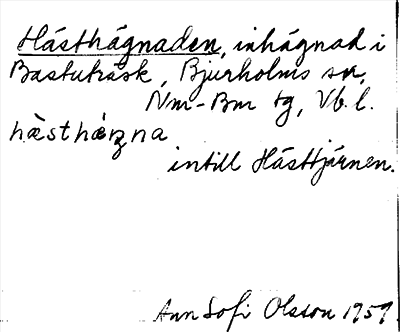 Hästhägnaden, inhägnad i
Bastuträsk, Bjurholms sn,
Nm-Bm tg, Vb. l.
hæsthæŋna
intill Hästtjärnen.
Ann Sofi Olsson 1959.